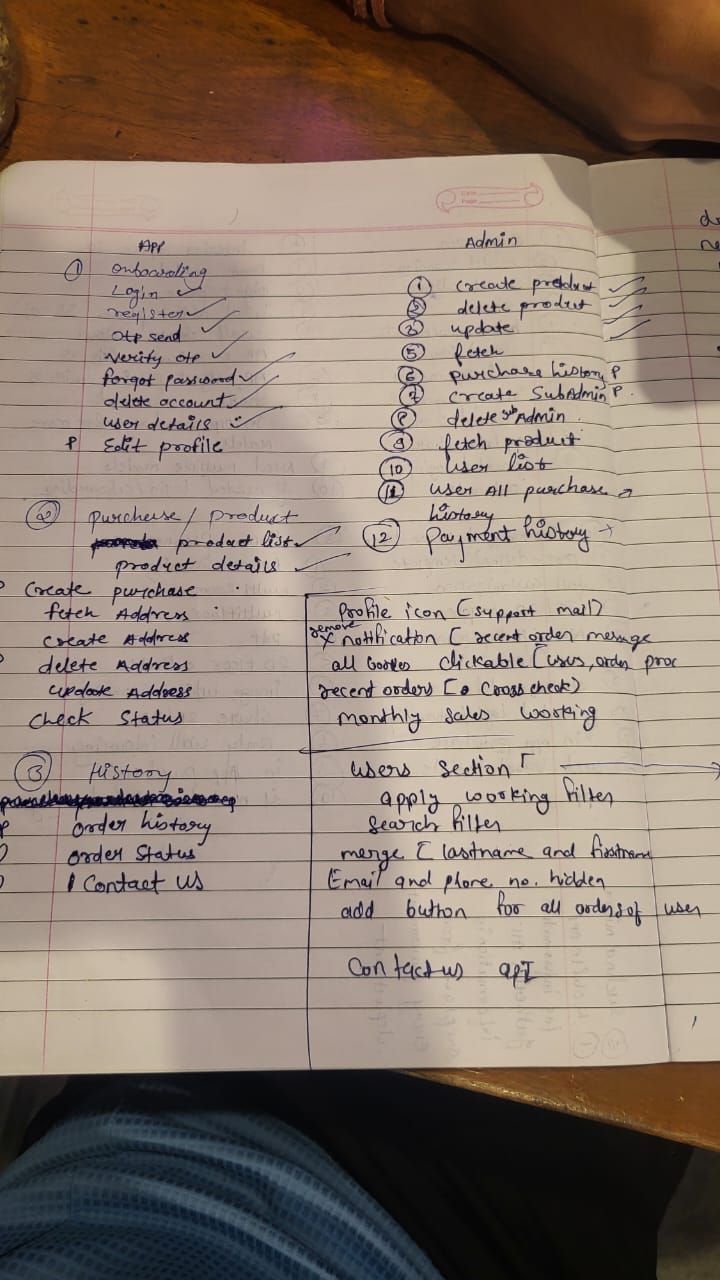 App
① Onboarding
Login ✓
register ✓
otp send ✓
Verify otp ✓
forgot password ✓
delete account ✓
user details ✓
P Edit profile
② Purchase / product
product list ✓
product details ✓
Create purchase
fetch Address
create Address
delete Address
update Address
Check Status
③ History
order history
order Status
Contact us
Admin
① create product ✓
② delete product ✓
③ update ✓
⑤ fetch
⑥ Purchase history P
⑦ create SubAdmin P.
⑧ delete sub Admin
⑨ fetch product
⑩ User list
⑪ user All purchase
history
⑫ Payment history
Profile icon [support mail]
remove
x notification [ recent order message
all boxes clickable [users, order, proc
recent orders [ cross check]
monthly sales working
Users section
apply working filter
Search filter
merge [ lastname and firstname
Email and phone no. hidden
add button for all orders of user
Contact us apI
Date
Page